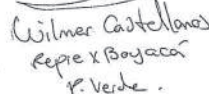 Wilmer Castellanos
Repre x Boyacá
P. Verde.